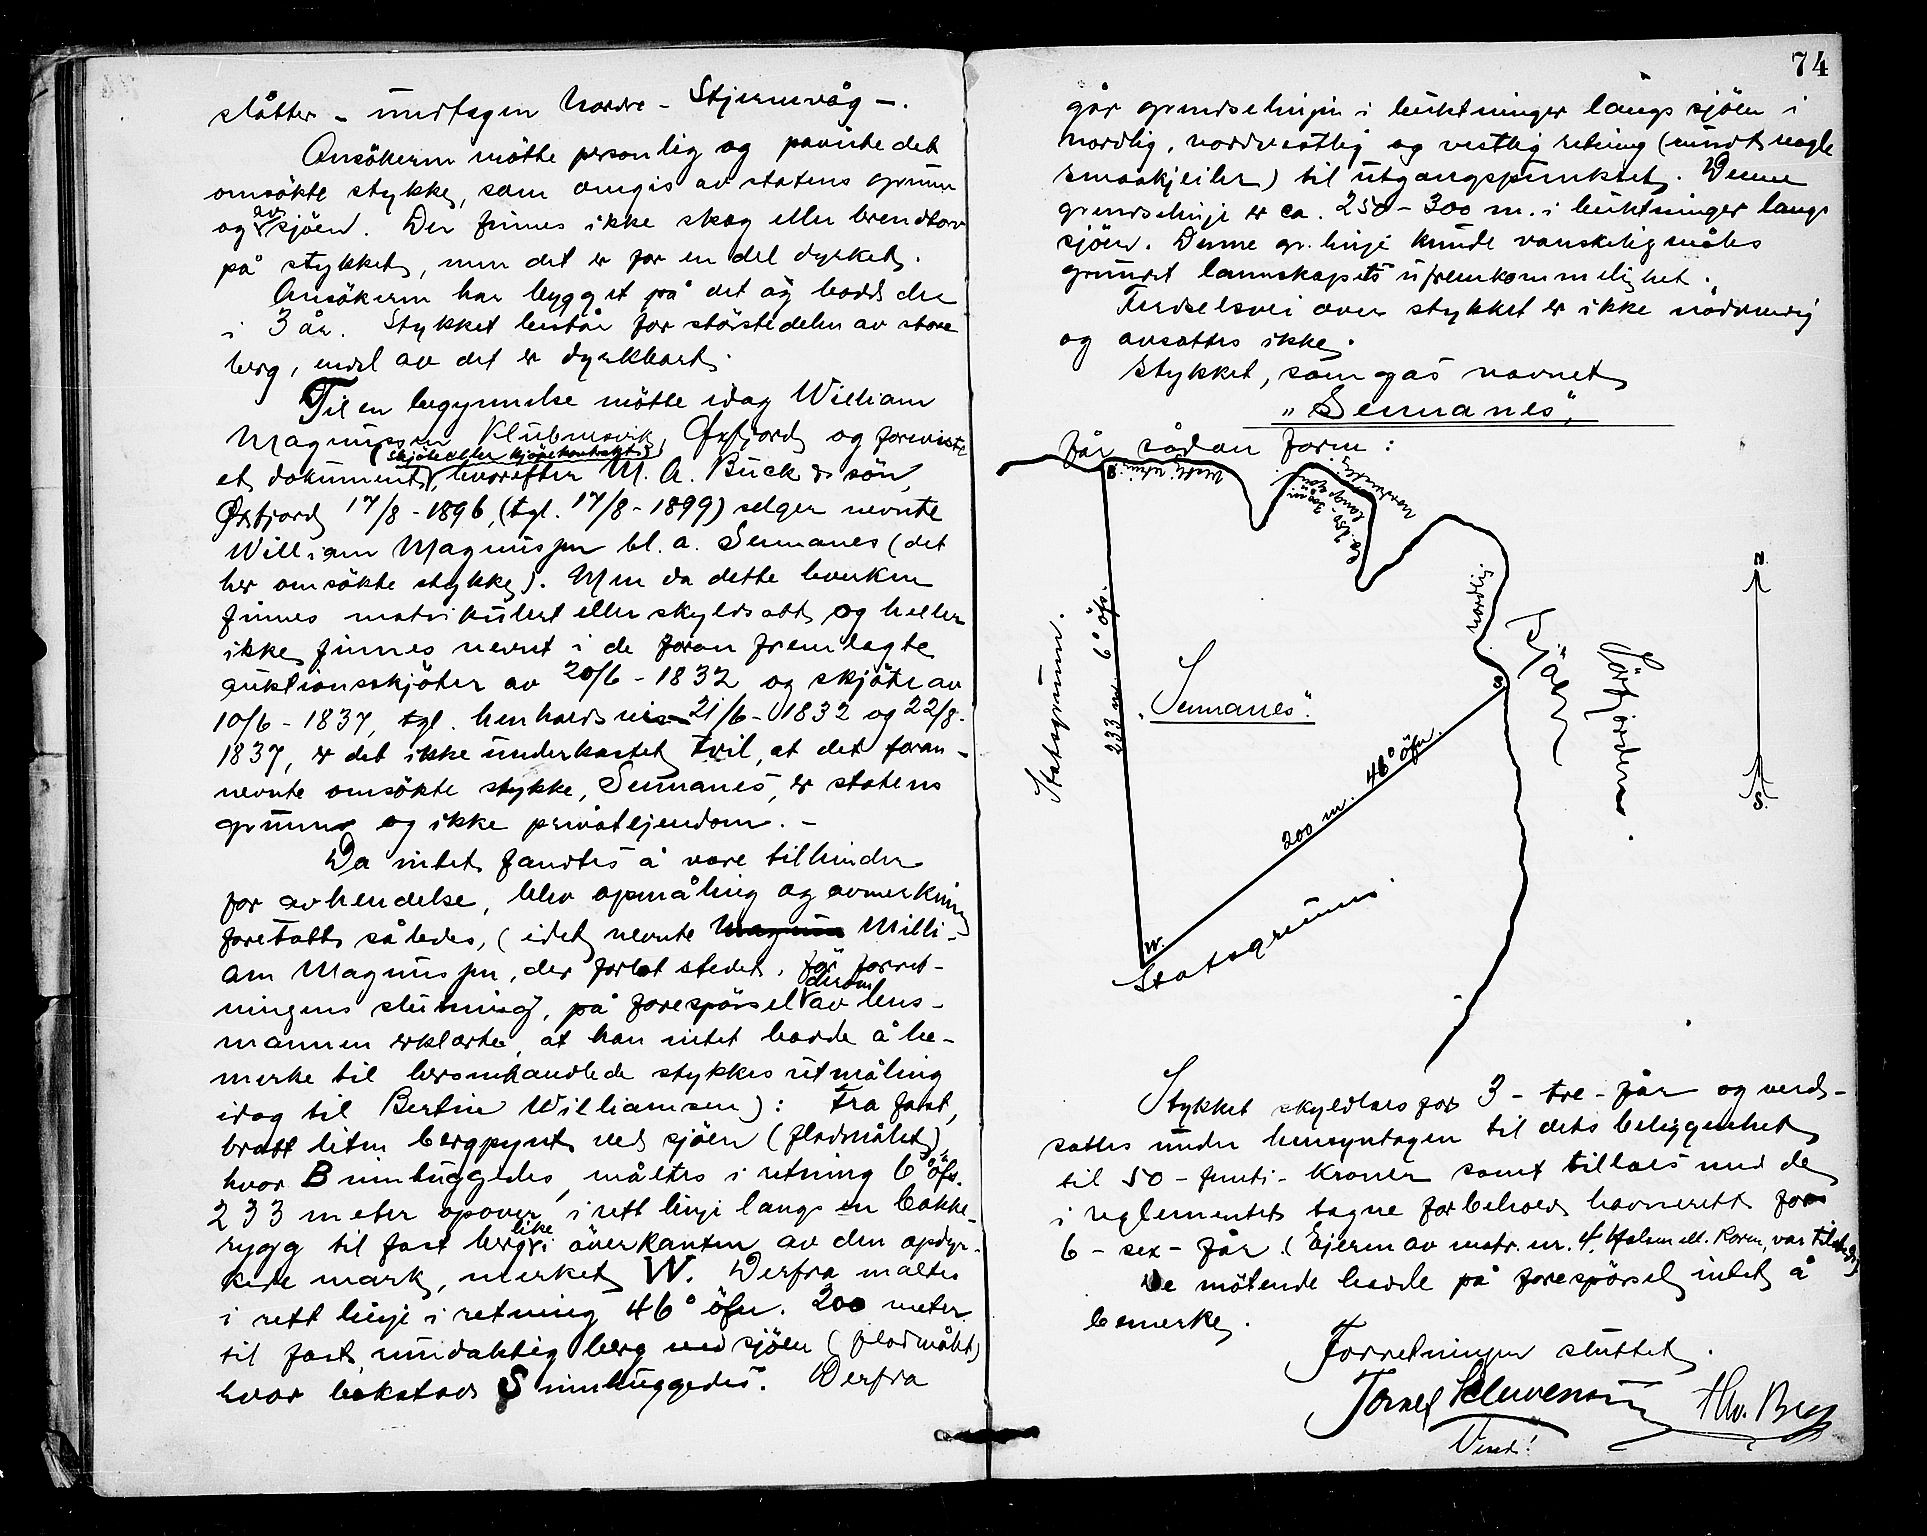 slåtter - undtagen Nordre - Stjernvåg -.
Ansökeren mötte personlig og påviste det
omsökte stykke, som omgis av statens grunn
og av sjöen. Der finnes ikke skog eller brendtorv
på stykket, men det er for en del dyrket.
Ansökeren har bygget på det og bodd der
i 3 år. Stykket består for störstedelen av store
berg, endel av det er dyrkbart.
Til en begynnelse mötte idag William
Magnussen Klubnesvik, Öxfjord og foreviste
et dokument (skjöte eller kjöpekontrakt), hvorefter M. A. Buck & sön,
Öxfjord 17/8 - 1896, (tgl. 17/8 - 1899) selger nevnte
William Magnussen bl. a. Sennanes (det
her omsökte stykke). Men da dette hverken
finnes matrikulert eller skyldsatt og heller
ikke finnes nevnt i de foran fremlagte
auktionsskjöter av 20/6 - 1832 og skjöte av
10/6 - 1837, tgl. henholdsvis 21/6 - 1832 og 22/8 -
1837, er det ikke underkastet tvil, at det foran-
nevnte omsökte stykke, Sennanes, er statens
grunn og ikke privateiendom. -
Da intet fandtes å være til hinder
for avhendelse, blev opmåling og avmerkning
foretatt således, (idet nevnte Willi-
am Magnussen, der forlot stedet, för forret-
ningens slutning, på forespörsel derom av lens-
mannen erklærte, at han intet hadde å be-
merke til heromhandlede stykkes utmåling
idag til Bertin Williamsen): Fra fast,
bratt liten bergpynt ved sjöen (flodmålet),
hvor B innhuggedes, måltes i retning 6° öfs.
233 meter opover i rett linje langs en bakke-
rygg til fast berg like i överkanten av den opdyr-
kede mark, merket W. Derfra måltes
i rett linje i retning 46° öfn. 200 meter
til fast, undaktig berg ved sjöen (flodmålet)
hvor bokstav S innhuggedes. Derfra
74
går grenselinjen i buktninger langs sjöen i
nordlig, nordvestlig og vestlig retning (rundt nogle
småskjeiler) til utgangspunktet. Denne
grenselinje er ca. 250 - 300 m. i buktninger langs
sjöen. Denne gr. linje kunde vanskelig måles
grunnet landskapets ufremkommelighet.
Ferdselsvei over stykket er ikke nödvendig
og avsattes ikke.
Stykket, som gas navnet
"Sennanes",
får sådan form:
B.
Vestlig retn.
ca 250
300 m
langs sjöen
nordvestlig
nordlig
S
Sjöen
Sörfjorden.
N.
S.
Statsgrunn.
233 m 6° öfs.
"Sennanes".
200 m. 46° öfn.
W.
Statsgrunn
Stykket skyldlaes for 3 - tre - för og verd-
sattes under hensyntagen til dets beliggenhet
til 50 - femti - kroner samt tillaes med de
i reglementet tagne forbehold havnerett for
6 - sex - får. (Eieren av matr. nr. 4,
De mötende hadde på forespörsel intet å
bemerke.
Forretningen sluttet.